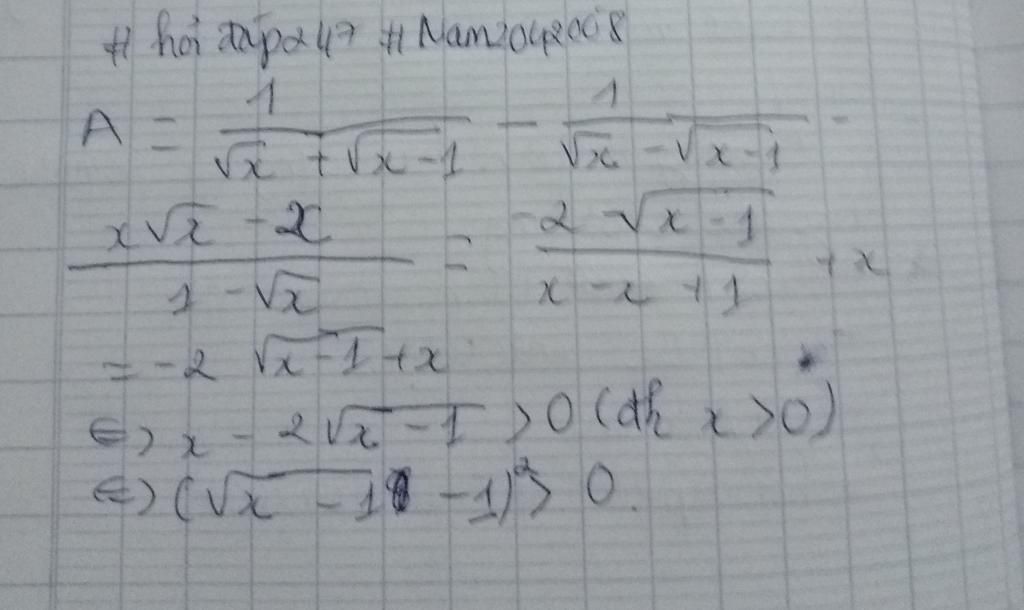 # hỏi đáp247 #Nam2042008
A = 1/(√x + √(x-1)) - 1/(√x - √(x-1)) -
(x√x - x)/(1 - √x) = (-2 √(x-1))/(x - x + 1) + x
= -2 √(x-1) + x
⇔ x - 2√(x-1) > 0 (đk x > 0)
⇔ (√(x-1) - 1)² > 0.